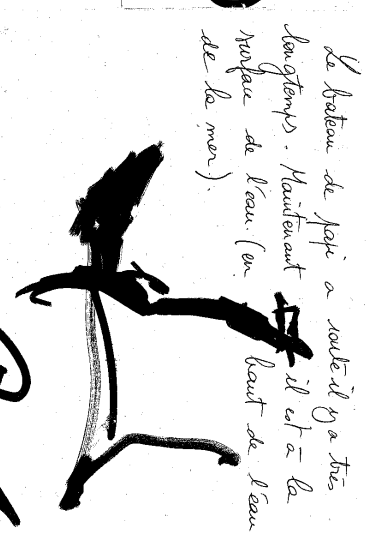 Le bateau de papi a sauté il y a très
longtemps. Maintenant il est à la
surface de l'eau. (en haut de l'eau
de la mer).